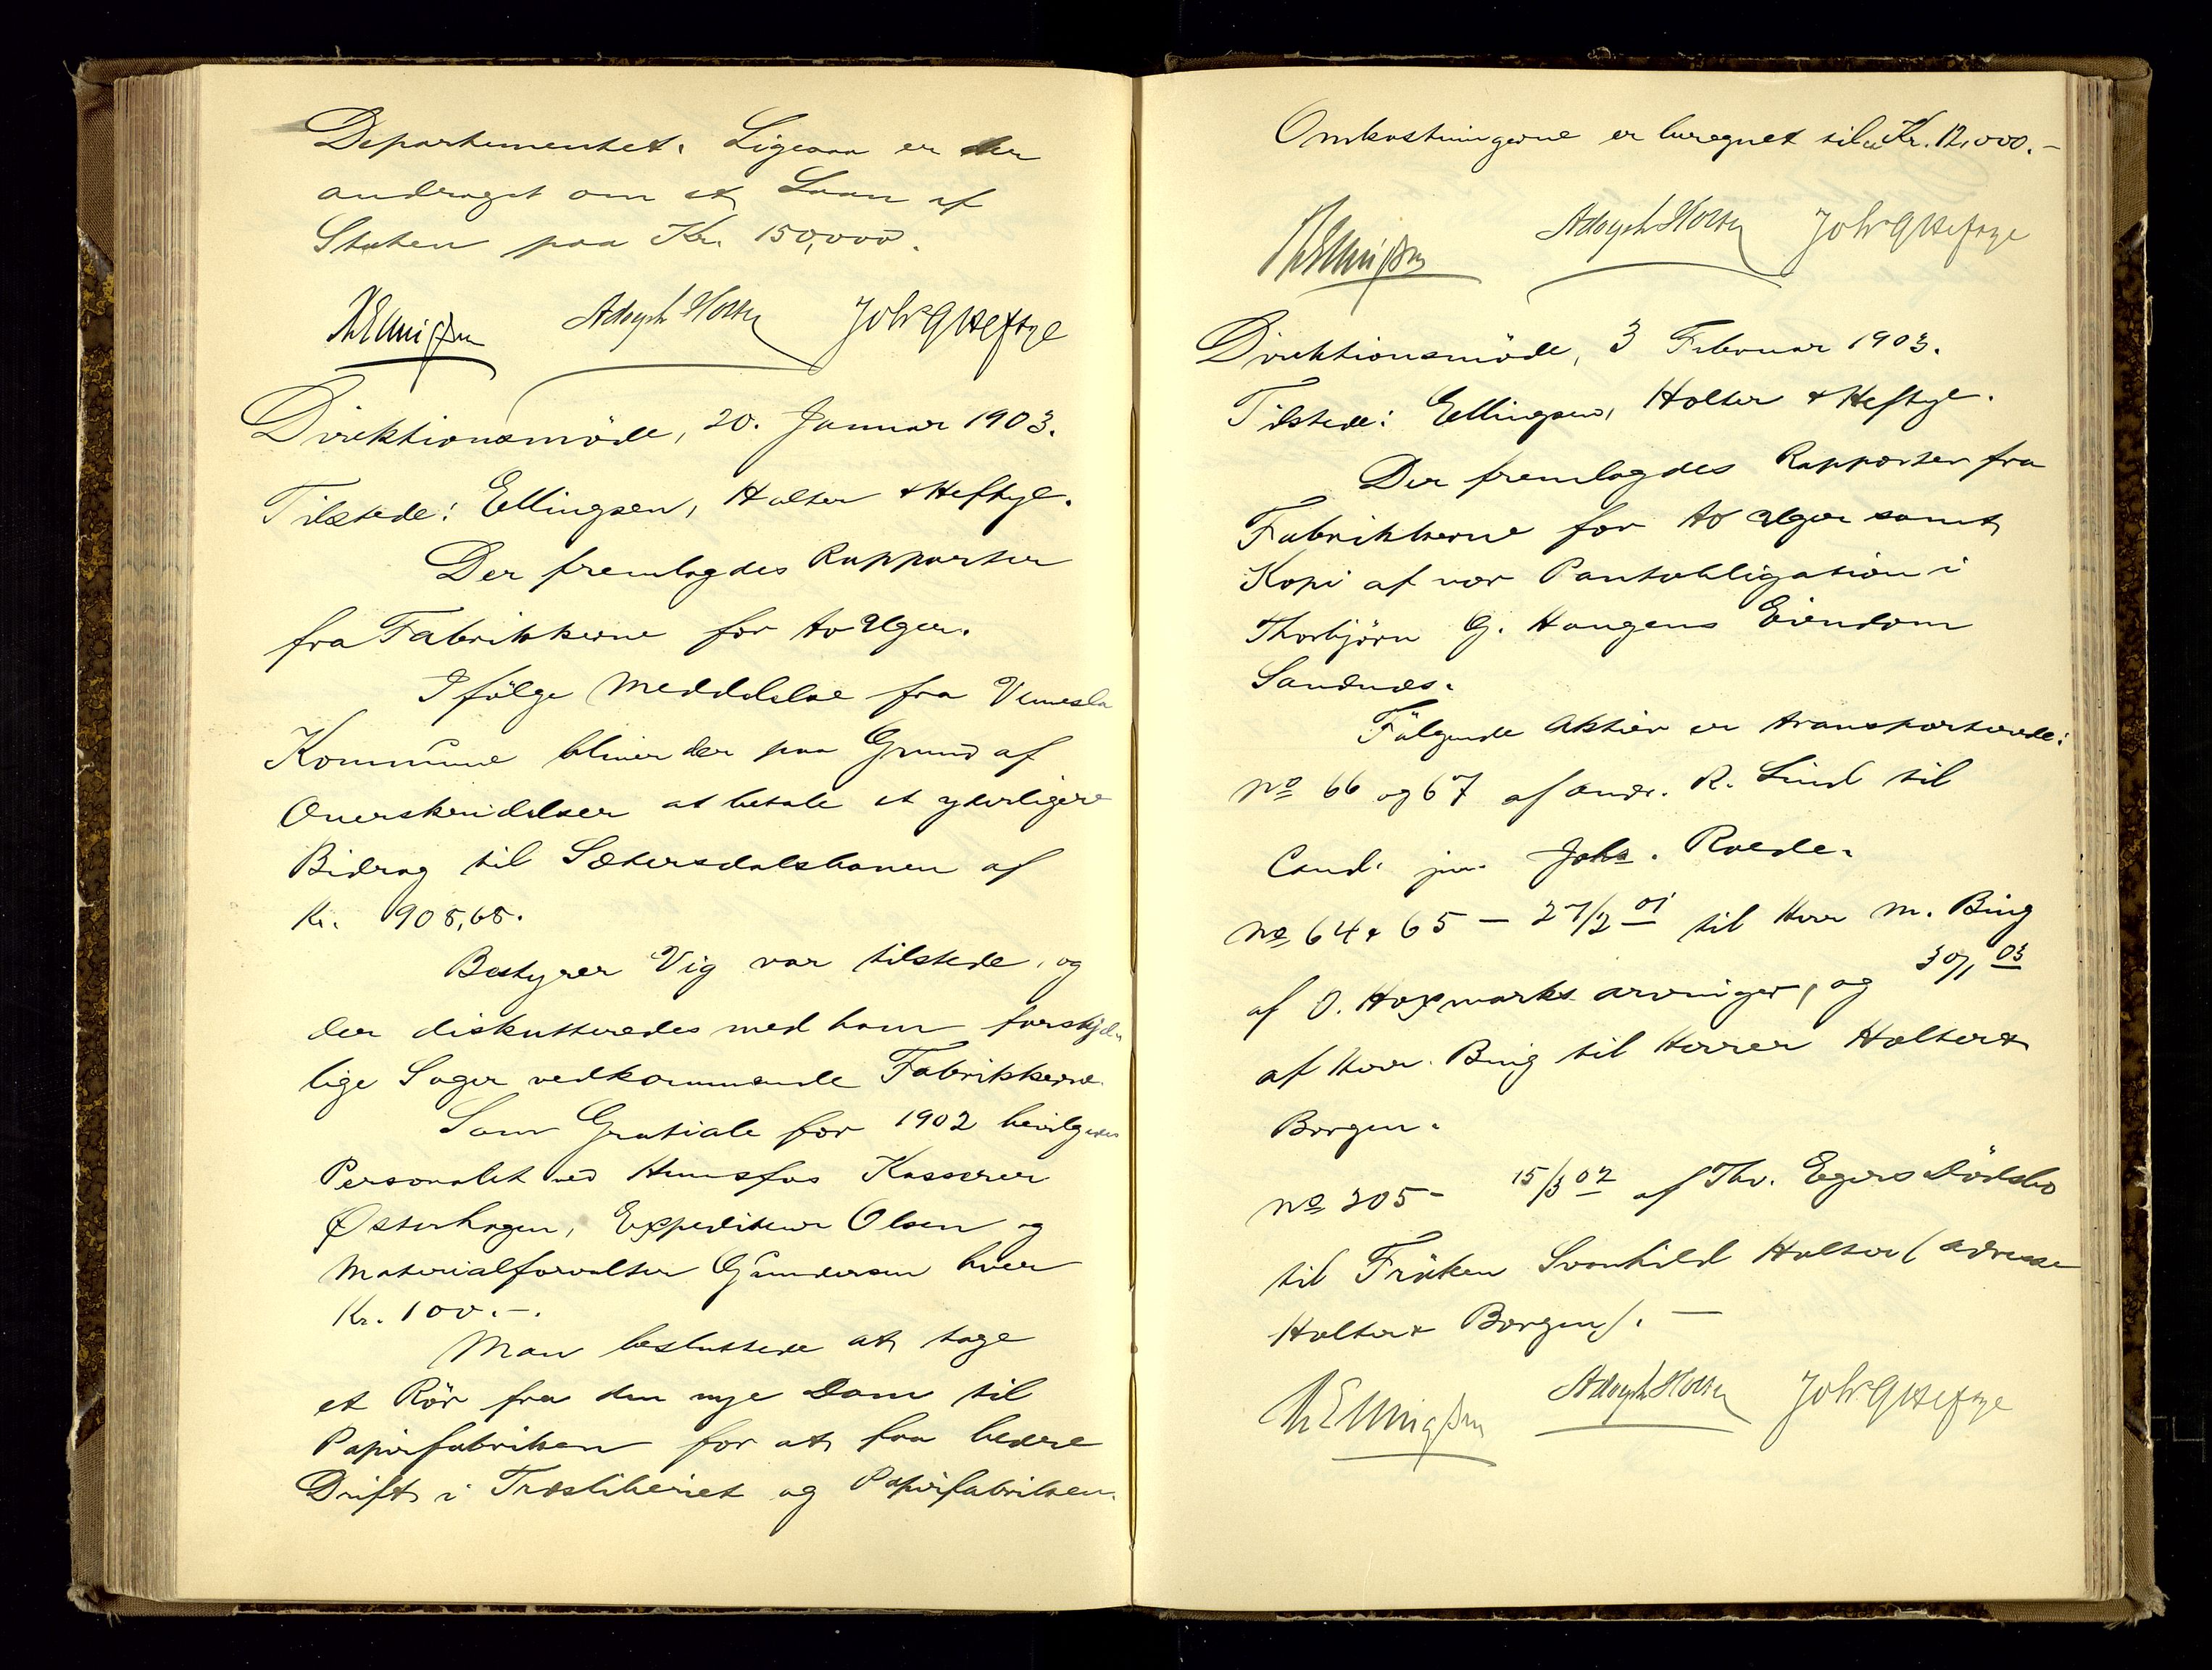 Departementet. Ligesaa er der
andraget om et Laan af
Staten paa Kr. 150,000.
Th Ellingsen Adolph Holter Joh. G Heftye
Direktionsmöde, 20. Januar 1903.
Tilstede: Ellingsen, Holter & Heftye.
Der fremlagdes Rapporter
fra Fabrikkerne for to Uger.
Ifölge Meddelelse fra Vennesla
Kommune bliver der paa Grund af
Overskridelser at betale et yderligere
Bidrag til Sætersdalsbanen af
Kr. 908,68.
Bestyrer Vig var tilstede, og
der diskutteredes med ham forskjel-
lige Sager vedkommende Fabrikkerne.
Som Gratiale for 1902 bevilgedes
Personalet ved Hunsfos Kasserer
Østerhagen, Expediteur Olsen og
Materialforvalter Gundersen hver
Kr. 100.-.
Man besluttede at tage
et Rör fra den nye Dam til
Papirfabriken for at faa bedre
Drift i Træsliberiet og Papirfabriken.
Omkostningerne er beregnet til Kr. 12,000.-
Th Ellingsen Adolph Holter Joh. G Heftye
Direktionsmöde, 3 Februar 1903.
Tilstede: Ellingsen, Holter & Heftye.
Der fremlagdes Rapporter fra
Fabrikkerne for to Uger samt
Kopi af vor Pantobligation i
Thorbjörn G. Haugens Eiendom
Sandnes.
Fölgende Aktier er transporterede:
No 66 og 67 af Andr. R. Lind til
Cand. jur. Johs. Roede.
No 64 & 65 – 27/2 01 til Herr M. Bing
af O. Haxmarks arvinger, og 30/1 03
af Herr. Bing til Herrer Holter &
Borgen.
No 205 - 15/3 02 af Thv. Egers Dödsbo
til Fröken Svanhild Holter (adresse
Holter & Borgen). —
Th Ellingsen Adolph Holter Joh. G Heftye